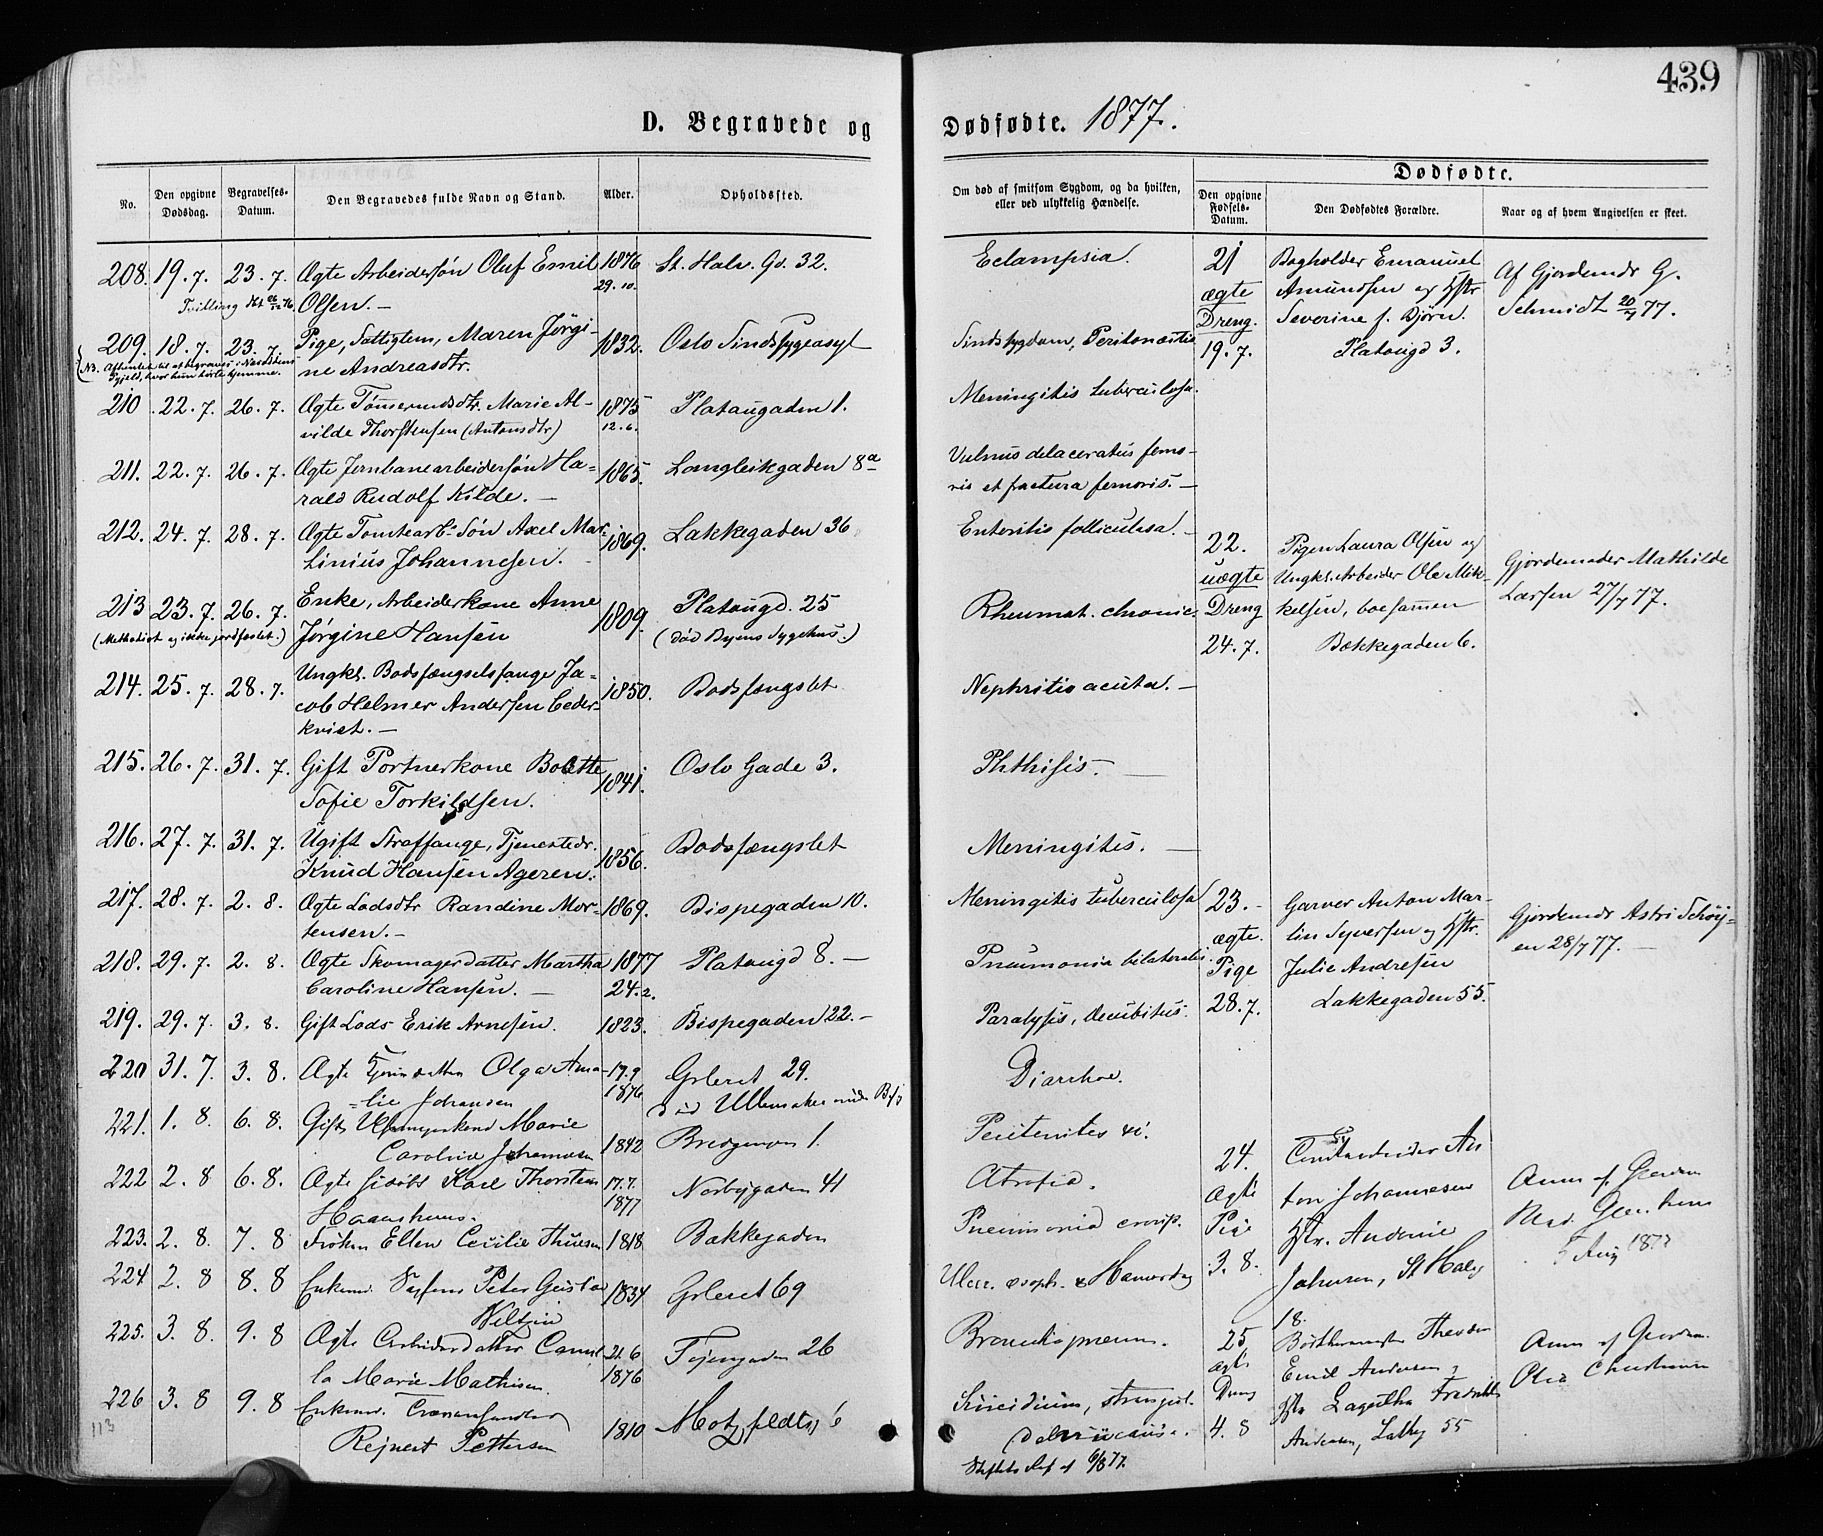 439
D. Begravede og Dødfødte. 1877.
No. Den opgivne Dødsdag. Begravelses-Datum. Den Begravedes fulde Navn og Stand. Alder. Opholdssted. Om død af smitsom Sygdom, og da hvilken, eller ved ulykkelig Hændelse.
Dødfødte.
Den opgivne Fødsels-Datum. Den Dødfødtes Forældre. Naar og af hvem Angivelsen er skeet.
208. 19. 7. 23. 7. Ægte Arbeidersøn Oluf Emil 1876 St. Halv. Gd. 32. Eclampsia.
Tvilling Olsen. — 29. 10.
209. 18. 7. 23. 7. Pige, Fattiglem, Maren Jørgi- 1832. Oslo Sindssygeasyl Sindssygdom, Peritonæitis
(NB. Afhentet til at begraves i
hvor hun hørte hjemme. ne Andreasdtr.
210. 22. 7. 26. 7. Ægte Tømermdsdtr. Marie Al- 1875 Platougaden 1. Meningitis tuberculosa.
vilde Thorstensen (Antonsdtr) 12. 6.
211. 22. 7. 26. 7. Ægte Jernbanearbeidersøn Ha- 1865. Langleikgaden 8a Vulnus delaceratus femo-
rald Rudolf Kilde. — ris et fractura femoris. —
212. 24. 7. 28. 7. Ægte Tomtearb. Søn Axel Mar- 1869. Lakkegaden 36 Enteritis folliculosa. —
tinius Johannesen. —
213 23. 7. 26. 7. Enke, Arbeiderkone Anne 1809. Platougd. 25 Rheumat. chronic.
(Methodist og ikke jordfæstet.) Jørgine Hansen (død Byens Sygehus.)
214. 25. 7. 28. 7. Ungkl. Bodsfængselsfange Ja- 1850. Bodsfængslet Nephritis acuta. —
cob Helmer Andersen Ceder-
kvist. —
215. 26. 7. 31. 7. Gift Portnerkone Bolette 1841. Oslo Gade 3. Phthisis. —
Sofie Torkildsen.
216. 27. 7. 31. 7. Ugift Straffange, Tjenestedr. 1856. Bodsfængslet Meningitis. —
Knud Hansen Ageren.
217. 28. 7. 2. 8. Ægte Lodsdtr Randine Mor- 1869. Bispegaden 10. Meningitis tuberculosa
tensen. —
218. 29. 7. 2. 8. Ægte Skomagerdatter Martha 1877 Platougd 8. — Pneumonia bilateralis.
Caroline Hansen. — 24. 2.
219. 29. 7. 3. 8. Gift Lods Erik Arnesen. 1823. Bispegaden 22. — Paralysis, decubitus.
220 31. 7. 3. 8. Ægte Olga Ama- 17. 9 Grleret 29. Diarrhoe.
lie Johansen 1876
221. 1. 8. 6. 8. Gift Marie 1842 1. Peritonites
Caroline Johannesen
222 2. 8 6. 8. Ægte Karl Thorsten 17. 7. Norbygaden 41 Atrofia.
1877
223. 2. 8. 7. 8 Frøken Ellen Cecilie Thuesen 1818 Bakkegaden Pneumonia croup.
224 2. 8 8. 8 Enkemd. Peter Gustav 1834 Grleret 69
225. 3. 8. 9. 8 Ægte Arbeiderdatter Camil- 21. 6 Tøiengaden 26 Bronchopneum.
la Marie Mathisen. 1876
226 3. 8 9. 8 Enkemd. 1810 Motzfeldtsg 6 Suicidium, strangul.
Rejnert Pettersen
Skiftets Att af 6/8 77.
113
21 Bogholder Emanuel Af Gjordemdr G.
ægte Amundsen og Hstr Schmidt 20/7 77.
Dreng. Severine f. Bjørn.
19. 7. Platougd 3.
22. Pigen Laura Olsen og Gjordemoder Mathilde
uægte Ungkl. Arbeider Ole Mik- Larsen 27/7 77.
Dreng kelsen, boe sammen
24. 7. Bækkegaden 6.
23. — Garver Anton Mar- Gjordemdr Astri Schøy-
ægte. tin Syversen og Hstr. en 28/7 77. —
Pige Julie Andresen
28. 7. Lakkegaden 55.
24. An-
Ægte ton Johannesen
Pige Hstr. 5 Aug 1877
3. 8. Johnsen, St Halvg
18.
25, Theodor Anm af Gjordem.
ægte Emil Andersen og Olea Christiansen
Dreng Hstr Lagertha
4. 8 Andersen, Lakkg 55